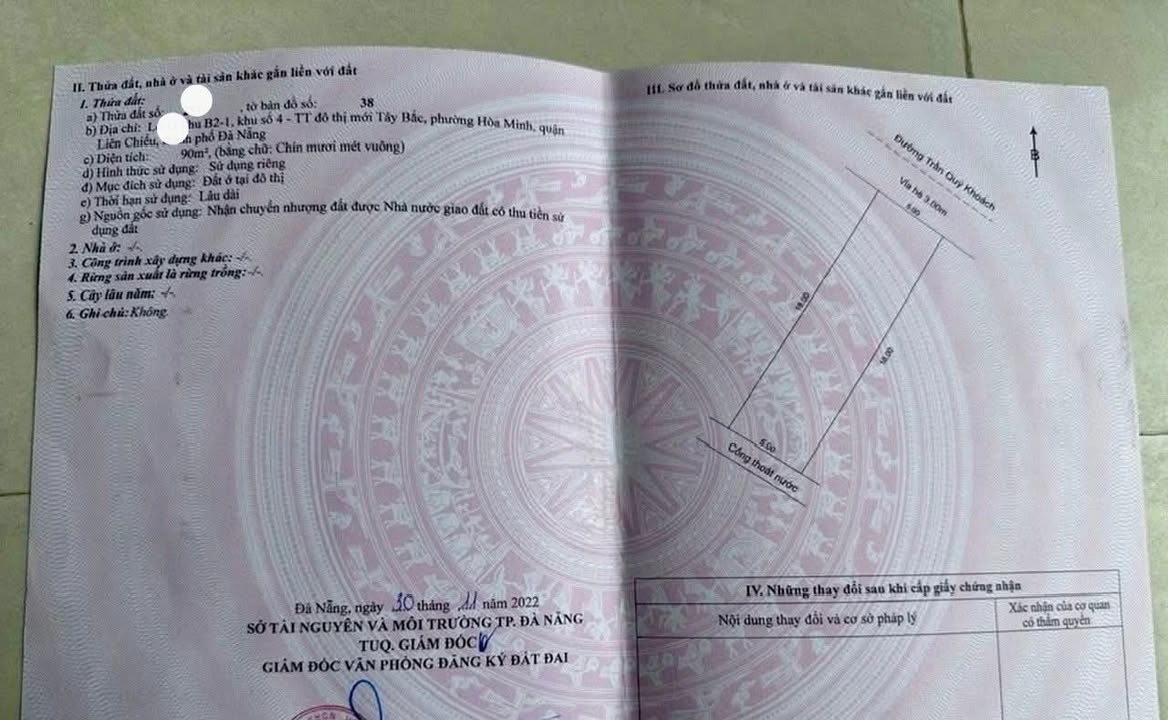 II. Thửa đất, nhà ở và tài sản khác gắn liền với đất
1. Thửa đất:
a) Thửa đất số: , tờ bản đồ số: 38
b) Địa chỉ: hu B2-1, khu số 4 - TT đô thị mới Tây Bắc, phường Hòa Minh, quận
Liên Chiểu, phố Đà Nẵng
c) Diện tích: 90m², (bằng chữ: Chín mươi mét vuông)
d) Hình thức sử dụng: Sử dụng riêng
đ) Mục đích sử dụng: Đất ở tại đô thị
e) Thời hạn sử dụng: Lâu dài
g) Nguồn gốc sử dụng: Nhận chuyển nhượng đất được Nhà nước giao đất có thu tiền sử
dụng đất
2. Nhà ở: -/-.
3. Công trình xây dựng khác: -/-.
4. Rừng sản xuất là rừng trồng: -/-.
5. Cây lâu năm: -/-.
6. Ghi chú: Không.
Đà Nẵng, ngày 30 tháng 11 năm 2022
SỞ TÀI NGUYÊN VÀ MÔI TRƯỜNG TP. ĐÀ NẴNG
TUQ. GIÁM ĐỐC
GIÁM ĐỐC VĂN PHÒNG ĐĂNG KÝ ĐẤT ĐAI
III. Sơ đồ thửa đất, nhà ở và tài sản khác gắn liền với đất
B
Đường Trần Quý Khoách
Vỉa hè 3.00m
5.00
18.00
18.00
5.00
Cống thoát nước
IV. Những thay đổi sau khi cấp giấy chứng nhận
Nội dung thay đổi và cơ sở pháp lý
Xác nhận của cơ quan
có thẩm quyền